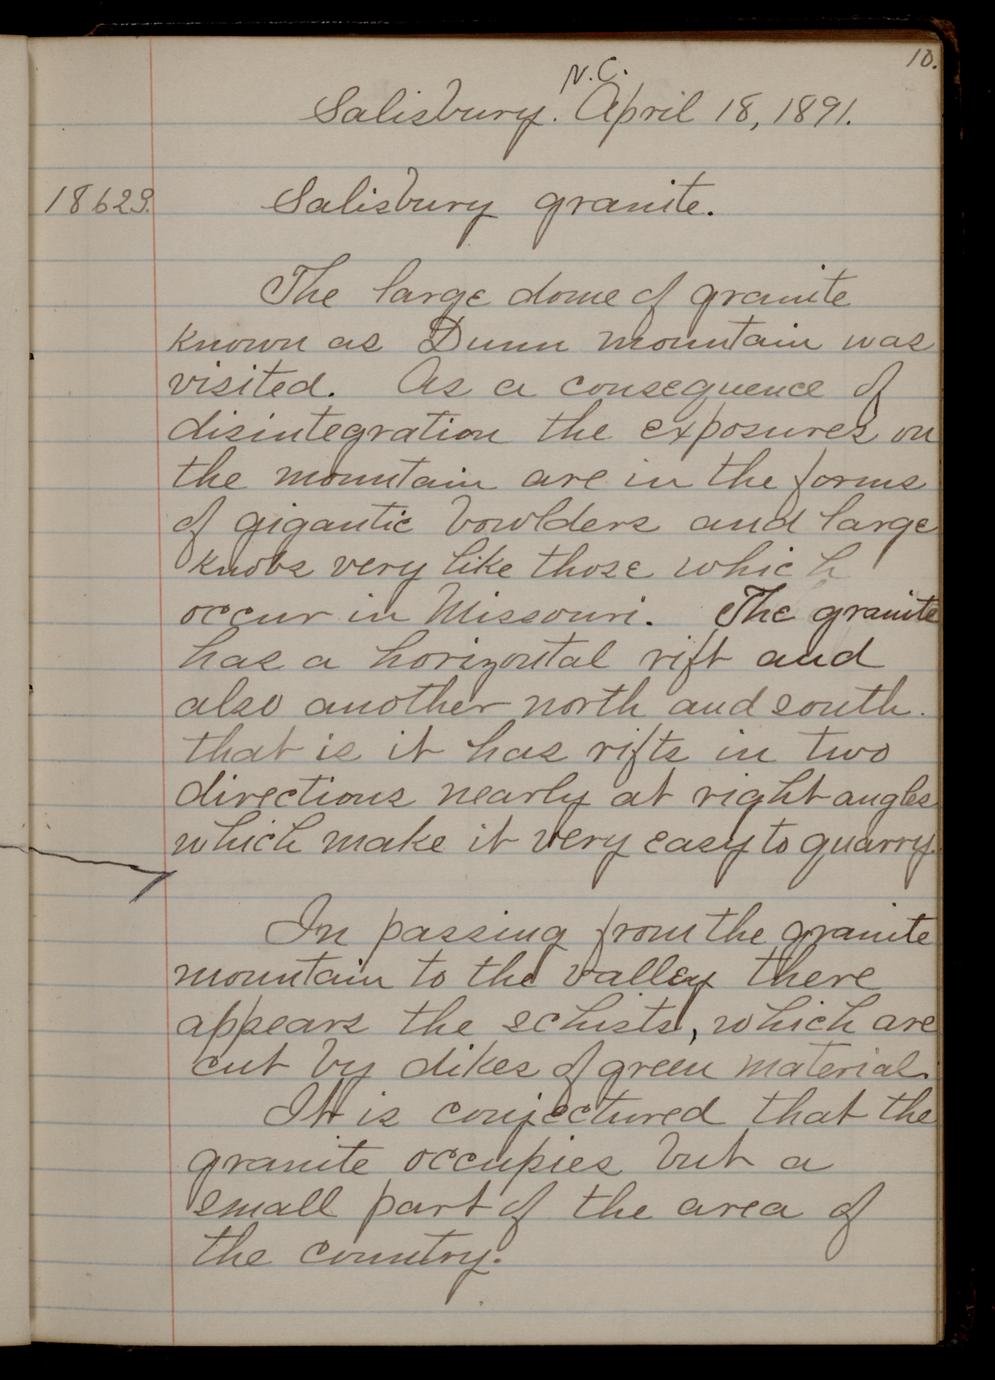 10.
N.C.
Salisbury. April 18, 1891.
18629. Salisbury granite.
The large dome of granite
known as Dunn mountain was
visited. As a consequence of
disintegration the exposures on
the mountain are in the forms
of gigantic bowlders and large
knobs very like those which
occur in Missouri. The granite
has a horizontal rift and
also another north and south.
that is it has rifts in two
directions nearly at right angles
which make it very easy to quarry.
In passing from the granite
mountain to the valley there
appears the schists, which are
cut by dikes of green material.
It is conjectured that the
granite occupies but a
small part of the area of
the country.